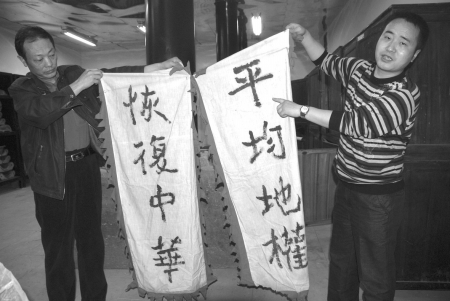 平均地權
恢復中華